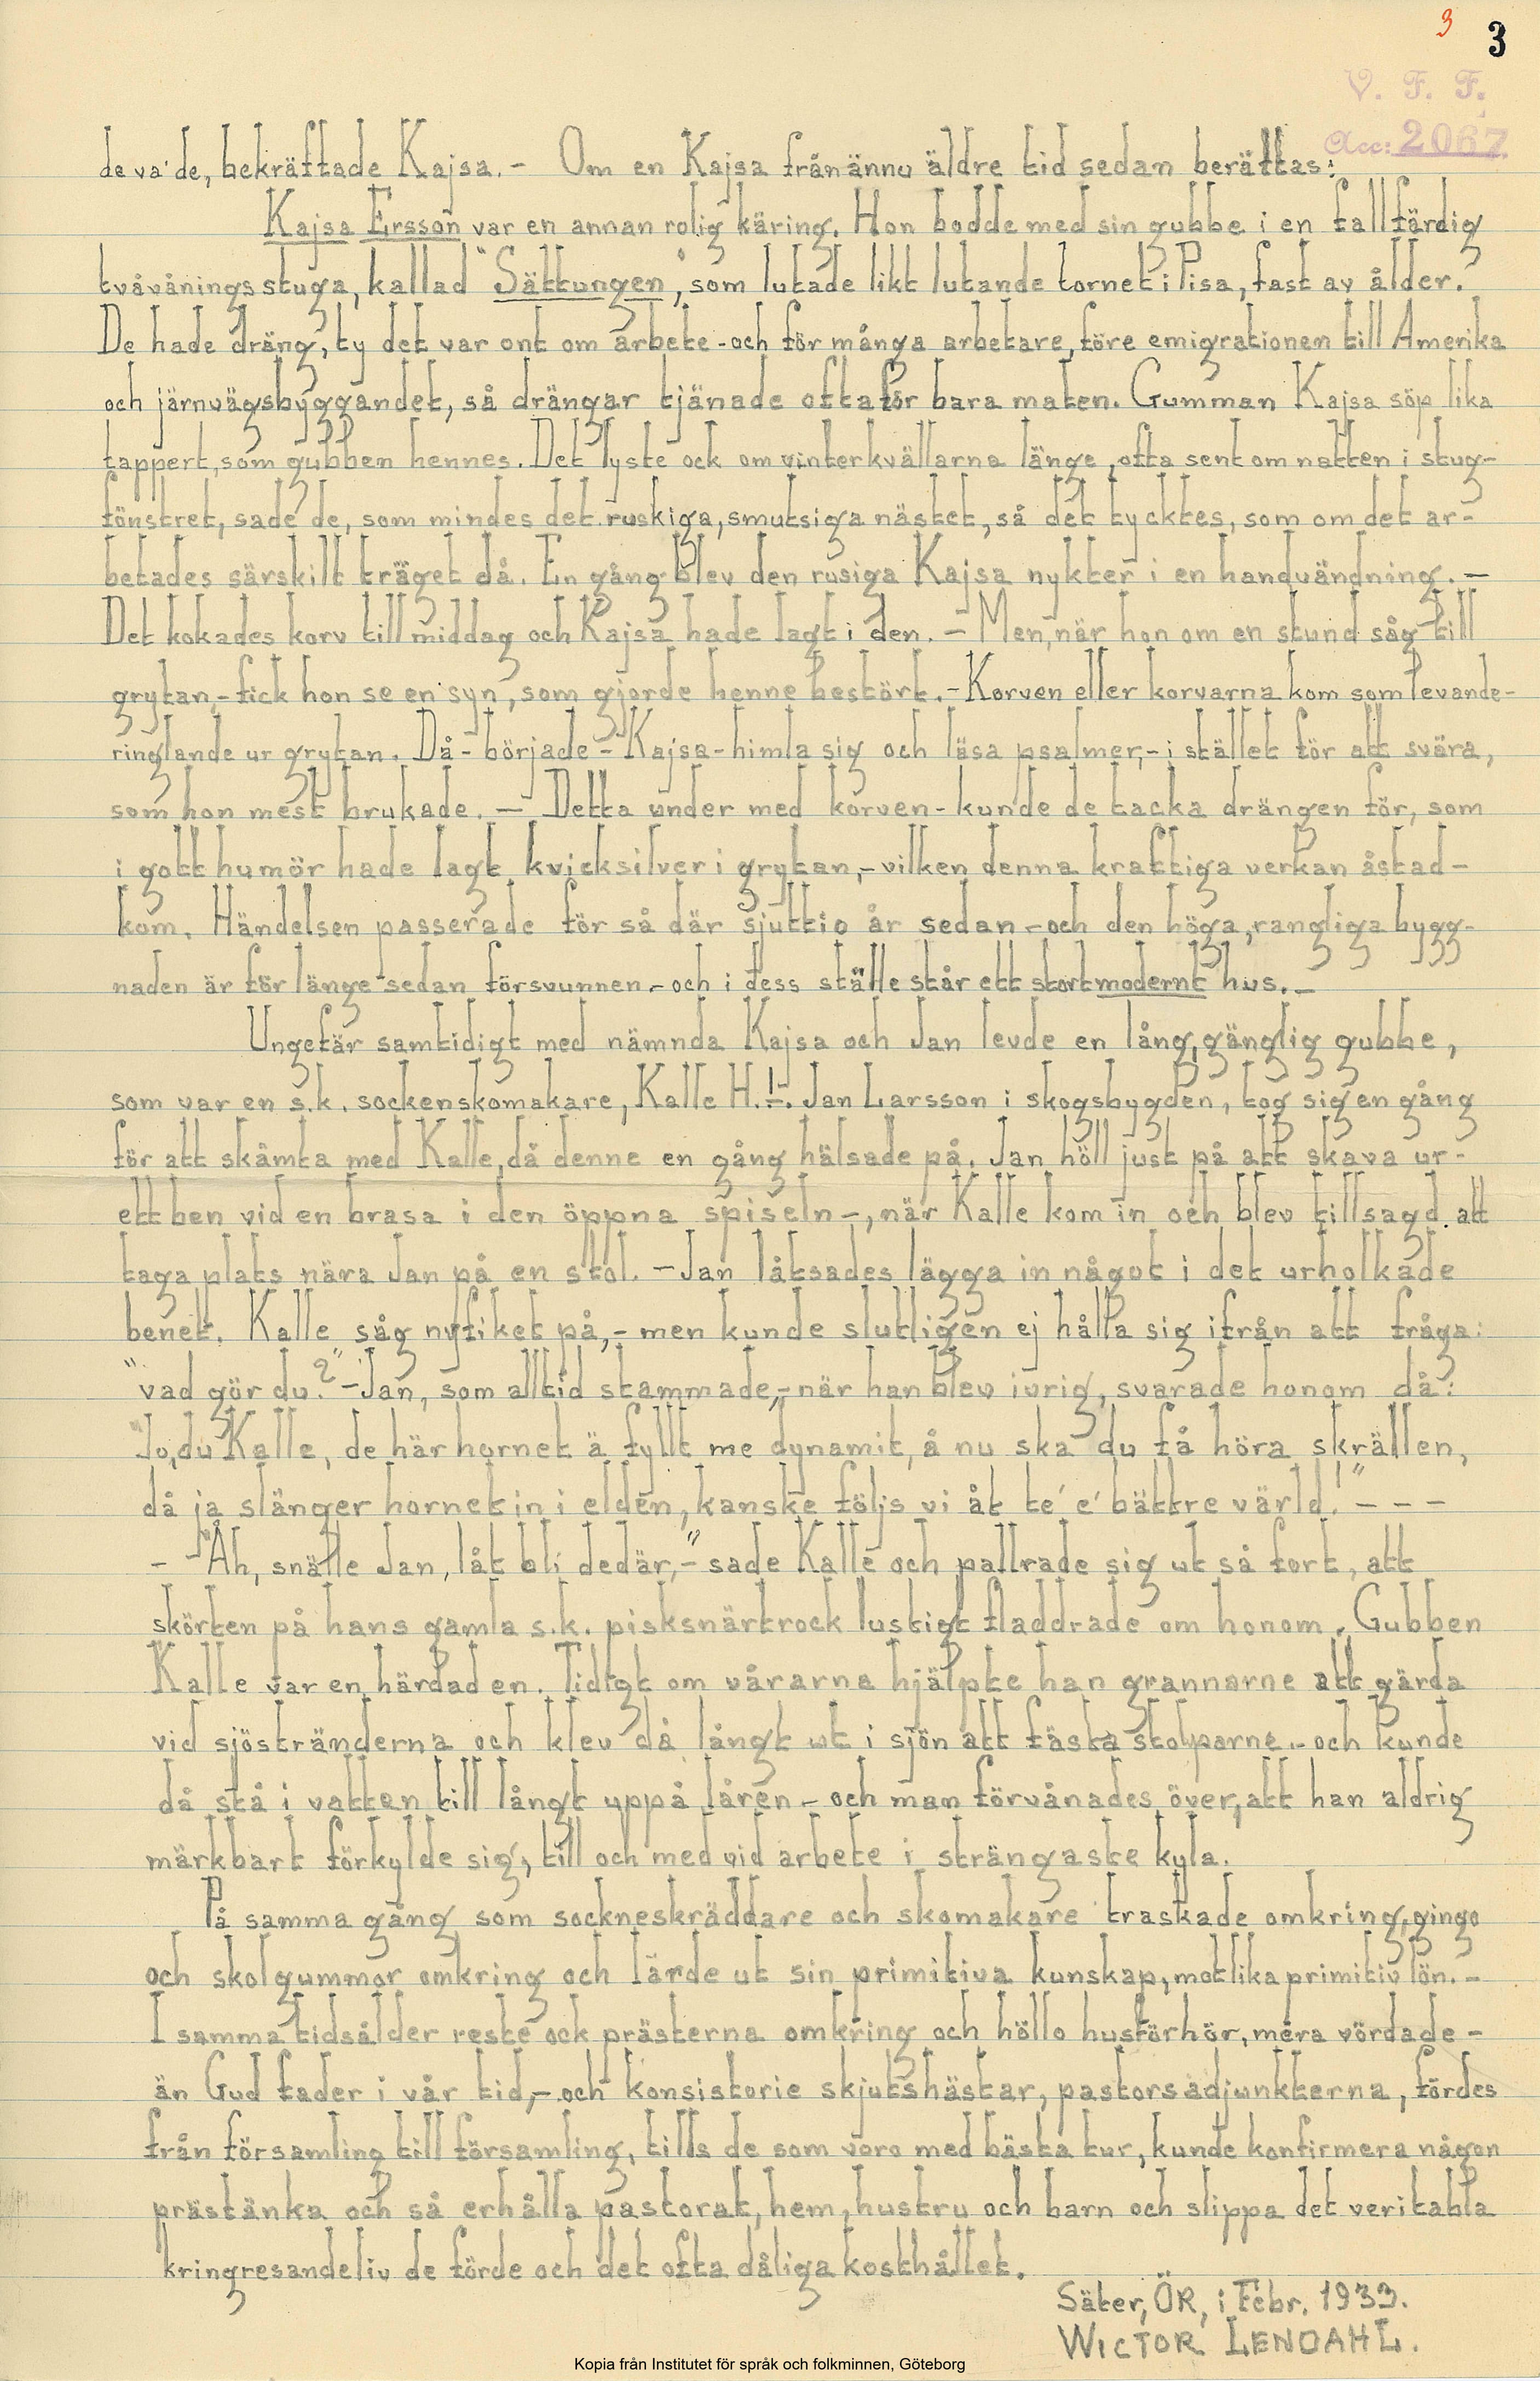 3 3
V. F. F.
Acc: 2067
de va' de, bekräftade Kajsa. - Om en Kajsa från ännu äldre tid sedan berättas:
Kajsa Ersson var en annan rolig käring. Hon bodde med sin gubbe i en fallfärdig
tvåvåningsstuga, kallad "Sättungen", som lutade likt lutande tornet i Pisa, fast av ålder.
De hade dräng, ty det var ont om arbete - och för många arbetare, före emigrationen till Amerika
och järnvägsbyggandet, så drängar tjänade ofta för bara maten. Gumman Kajsa söp lika
tappert, som gubben hennes. Det lyste ock om vinterkvällarna länge, ofta sent om natten i stug-
fönstret, sade de, som mindes det ruskiga, smutsiga nästet, så det tycktes, som om det ar-
betades särskilt träget då. En gång blev den rusiga Kajsa nykter i en handvändning. -
Det kokades korv till middag och Kajsa hade lagt i den. - Men, när hon om en stund såg till
grytan, - fick hon se en syn, som gjorde henne bestört. - Korven eller korvarna kom som levande-
ringlande ur grytan. Då - började - Kajsa - himla sig och läsa psalmer, - i stället för att svära,
som hon mest brukade. - Detta under med korven - kunde de tacka drängen för, som
i gott humör hade lagt kvicksilver i grytan, - vilken denna kraftiga verkan åstad-
kom. Händelsen passerade för så där sjuttio år sedan - och den höga, rangliga bygg-
naden är för länge sedan försvunnen - och i dess ställe står ett stort modernt hus. -
Ungefär samtidigt med nämnda Kajsa och Jan levde en lång, gänglig gubbe,
som var en s.k. sockenskomakare, Kalle H.!. Jan Larsson i skogsbygden, tog sig en gång
för att skämta med Kalle, då denne en gång hälsade på. Jan höll just på att skava ur-
ett ben vid en brasa i den öppna spiseln -, när Kalle kom in och blev tillsagd att
taga plats nära Jan på en stol. - Jan låtsades lägga in något i det urholkade
benet. Kalle såg nyfiket på, - men kunde slutligen ej hålla sig ifrån att fråga:
"vad gör du?" - Jan, som alltid stammade, - när han blev ivrig, svarade honom då:
"Jo, du Kalle, de här hornet ä fyllt me dynamit, å nu ska du få höra skrällen,
då ja slänger hornet in i elden, kanske följs vi åt te' e' bättre värld!" - - -
- - "Åh, snälle Jan, låt bli dedär, -" sade Kalle och pallrade sig ut så fort, att
skörten på hans gamla s.k. pisksnärtrock lustigt fladdrade om honom. Gubben
Kalle var en härdad en. Tidigt om vårarna hjälpte han grannarne att gärda
vid sjöstränderna och klev då långt ut i sjön att fästa stolparne. - och kunde
då stå i vatten till långt uppå låren - och man förvånades över, att han aldrig
märkbart förkylde sig, till och med vid arbete i strängaste kyla.
På samma gång som sockneskräddare och skomakare traskade omkring, gingo
och skolgummor omkring och lärde ut sin primitiva kunskap, mot lika primitiv lön. -
I samma tidsålder reste ock prästerna omkring och höllo husförhör, mera vördade -
än Gud fader i vår tid, - och konsistorie skjutshästar, pastorsadjunkterna, fördes
från församling till församling, tills de som voro med bästa tur, kunde konfirmera någon
prästänka och så erhålla pastorat, hem, hustru och barn och slippa det veritabla
kringresandeliv de förde och det ofta dåliga kosthållet.
Säter, ÖR, i Febr. 1933.
WICTOR LENDAHL.
Kopia från Institutet för språk och folkminnen, Göteborg